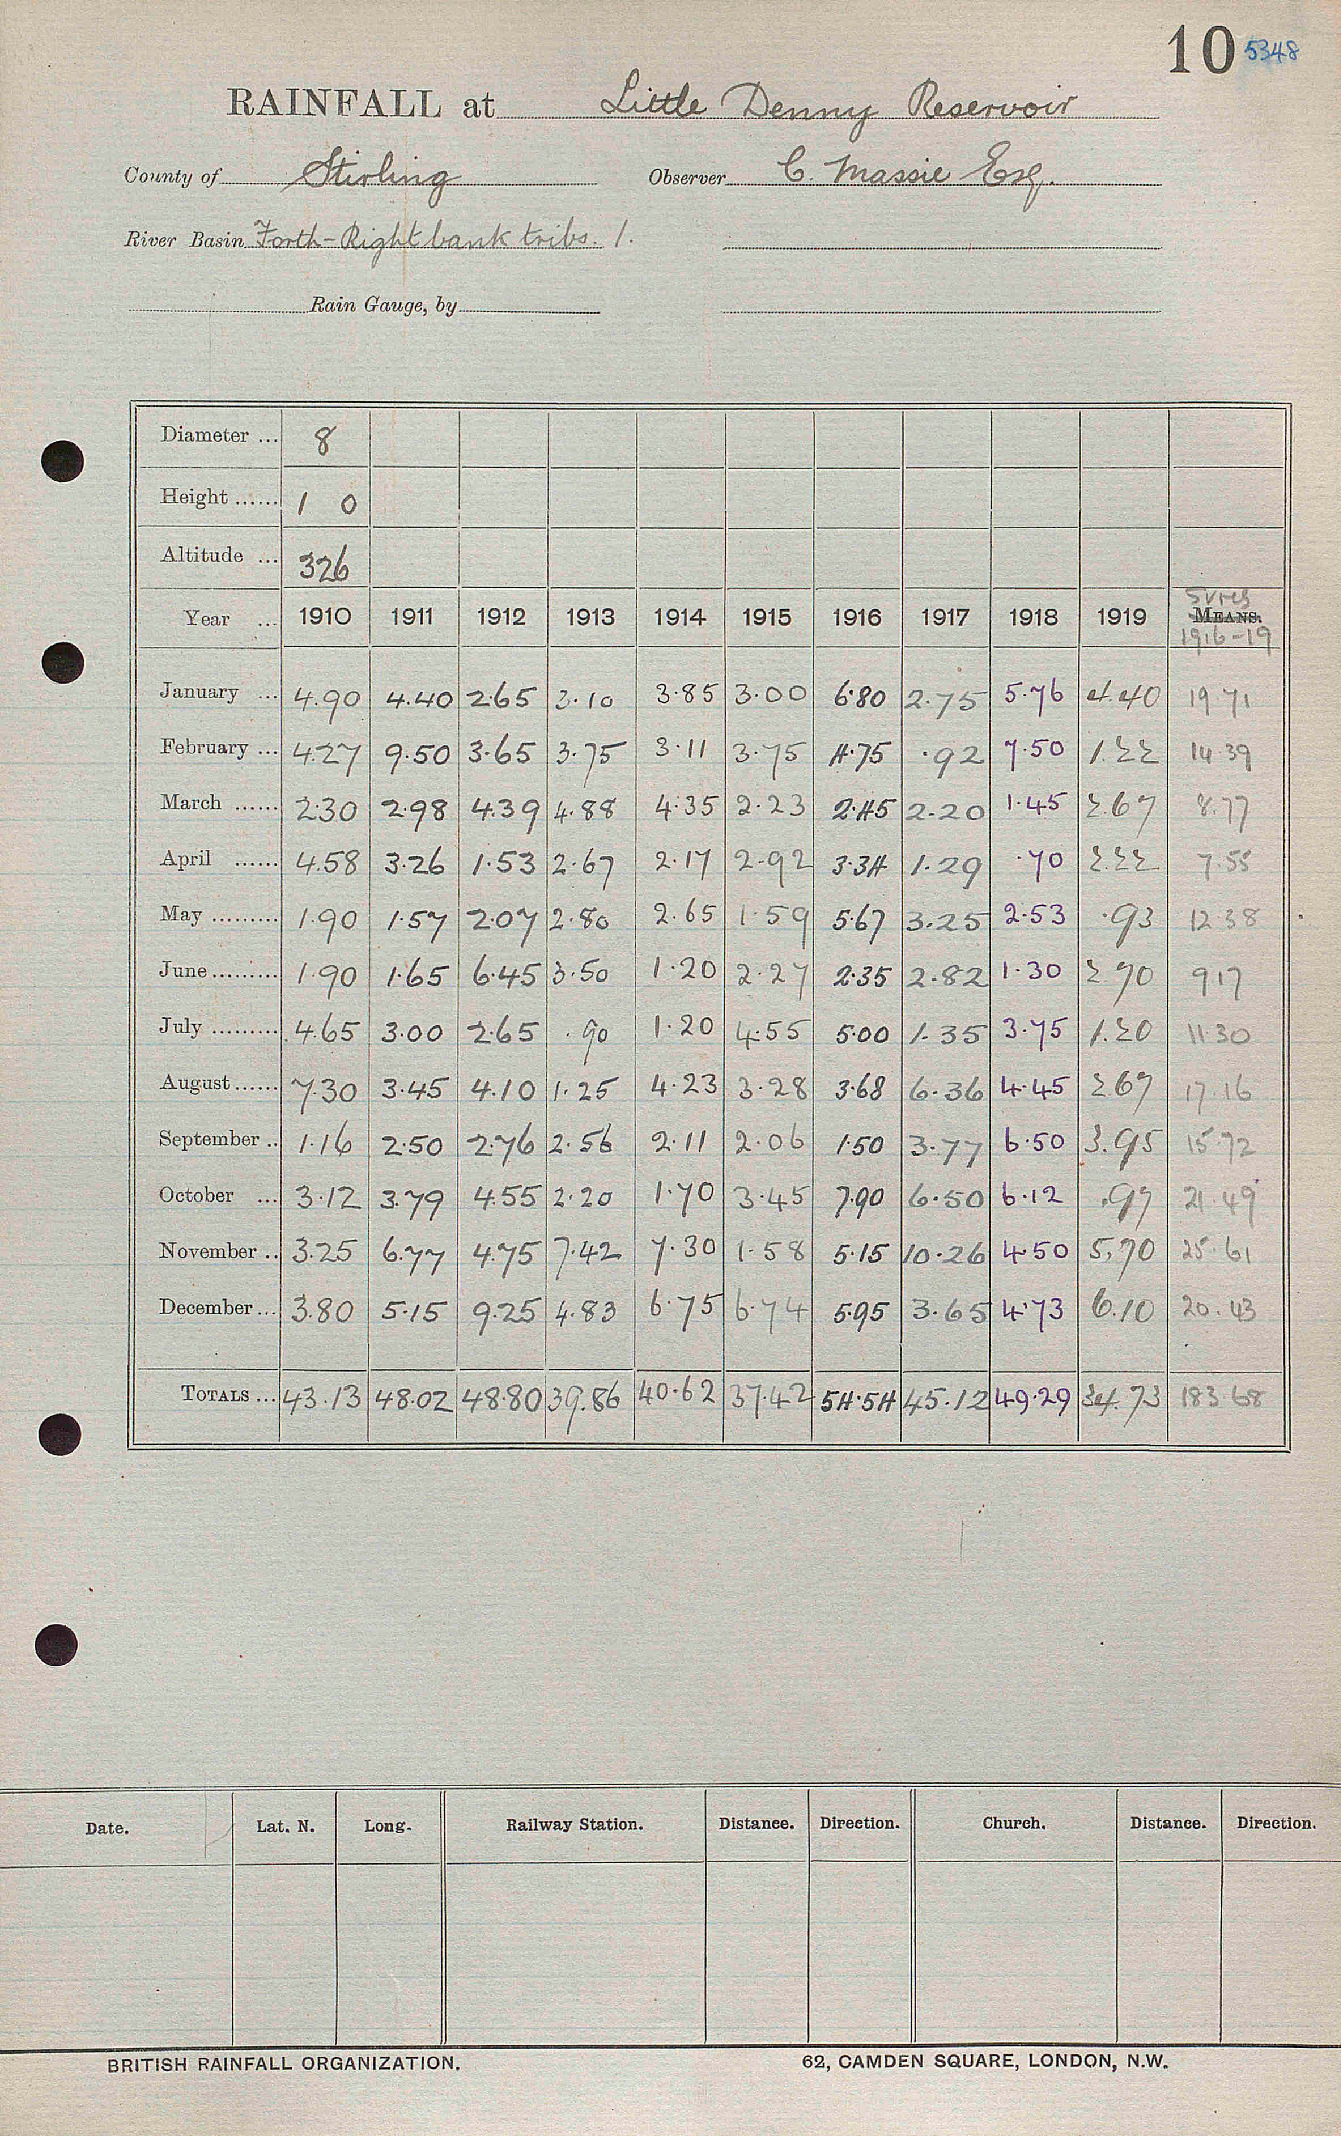 10 5348
RAINFALL at Little Denny Reservoir
County of Stirling Observer C. Massie Esq.
River Basin Forth-Right bank tribs. 1.
Rain Gauge, by
Diameter ... 8
Height ...... 1 0
Altitude ... 326
Year ... 1910 1911 1912 1913 1914 1915 1916 1917 1918 1919 MEANS.
1916-19
January ... 4.90 4.40 2.65 3.10 3.85 3.00 6.80 2.75 5.76 4.40 19 71
February ... 4.27 9.50 3.65 3.75 3.11 3.75 4.75 .92 7.50 1.22 14.39
March ...... 2.30 2.98 4.39 4.88 4.35 2.23 2.45 2.20 1.45 2.67 8.77
April ...... 4.58 3.26 1.53 2.67 2.17 2.92 3.34 1.29 .70 2.22 7.55
May ......... 1.90 1.57 2.07 2.80 2.65 1.59 5.67 3.25 2.53 .93 12 38
June ......... 1.90 1.65 6.45 3.50 1.20 2.27 2.35 2.82 1.30 2.70 9 17
July ......... 4.65 3.00 2.65 .90 1.20 4.55 5.00 1.35 3.75 1.20 11.30
August ...... 7.30 3.45 4.10 1.25 4.23 3.28 3.68 6.36 4.45 2.67 17.16
September .. 1.16 2.50 2.76 2.56 2.11 2.06 1.50 3.77 6.50 3.95 15.72
October ... 3.12 3.79 4.55 2.20 1.70 3.45 7.90 6.50 6.12 .97 21.49
November .. 3.25 6.77 4.75 7.42 7.30 1.58 5.15 10.26 4.50 5.70 25.61
December ... 3.80 5.15 9.25 4.83 6.75 6.74 5.95 3.65 4.73 6.10 20.43
TOTALS ... 43.13 48.02 48.80 39.86 40.62 37.42 54.54 45.12 49.29 34.73 183.68
Date. Lat. N. Long. Railway Station. Distance. Direction. Church. Distance. Direction.
BRITISH RAINFALL ORGANIZATION. 62, CAMDEN SQUARE, LONDON, N.W.